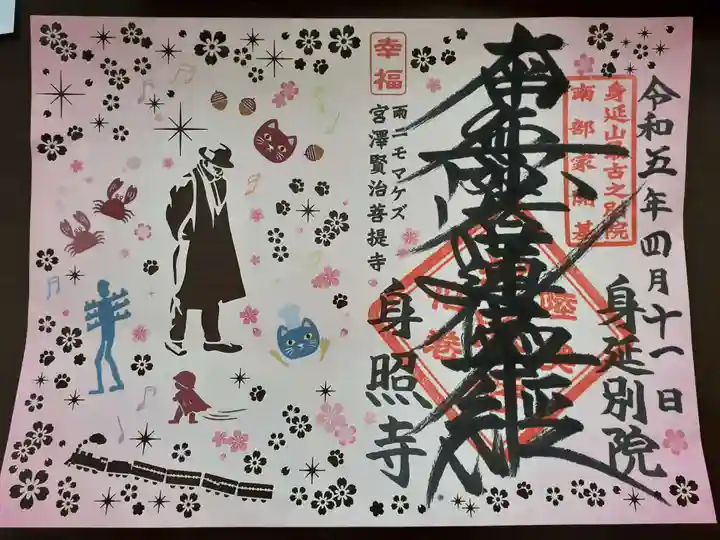 令和五年四月十一日
身延別院
身延山最古之別院
南部家開基
南無妙法蓮華経
幸福
雨ニモマケズ
宮澤賢治菩提寺
身照寺